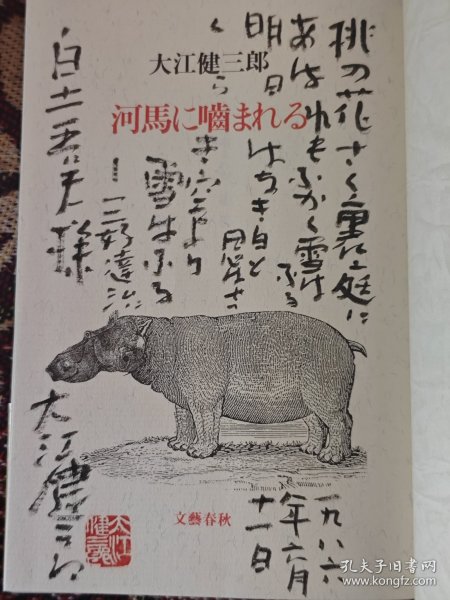 大江健三郎
河馬に嚙まれる
桃の花さく裏庭に
あはれもふかく雪はふる
明日はなき日と思はせつ
くらき空より
雪はふる
―三好達治
白土吾夫様
大江健三郎
一九八六
年六月
十一日
文藝春秋
孔夫子旧书网